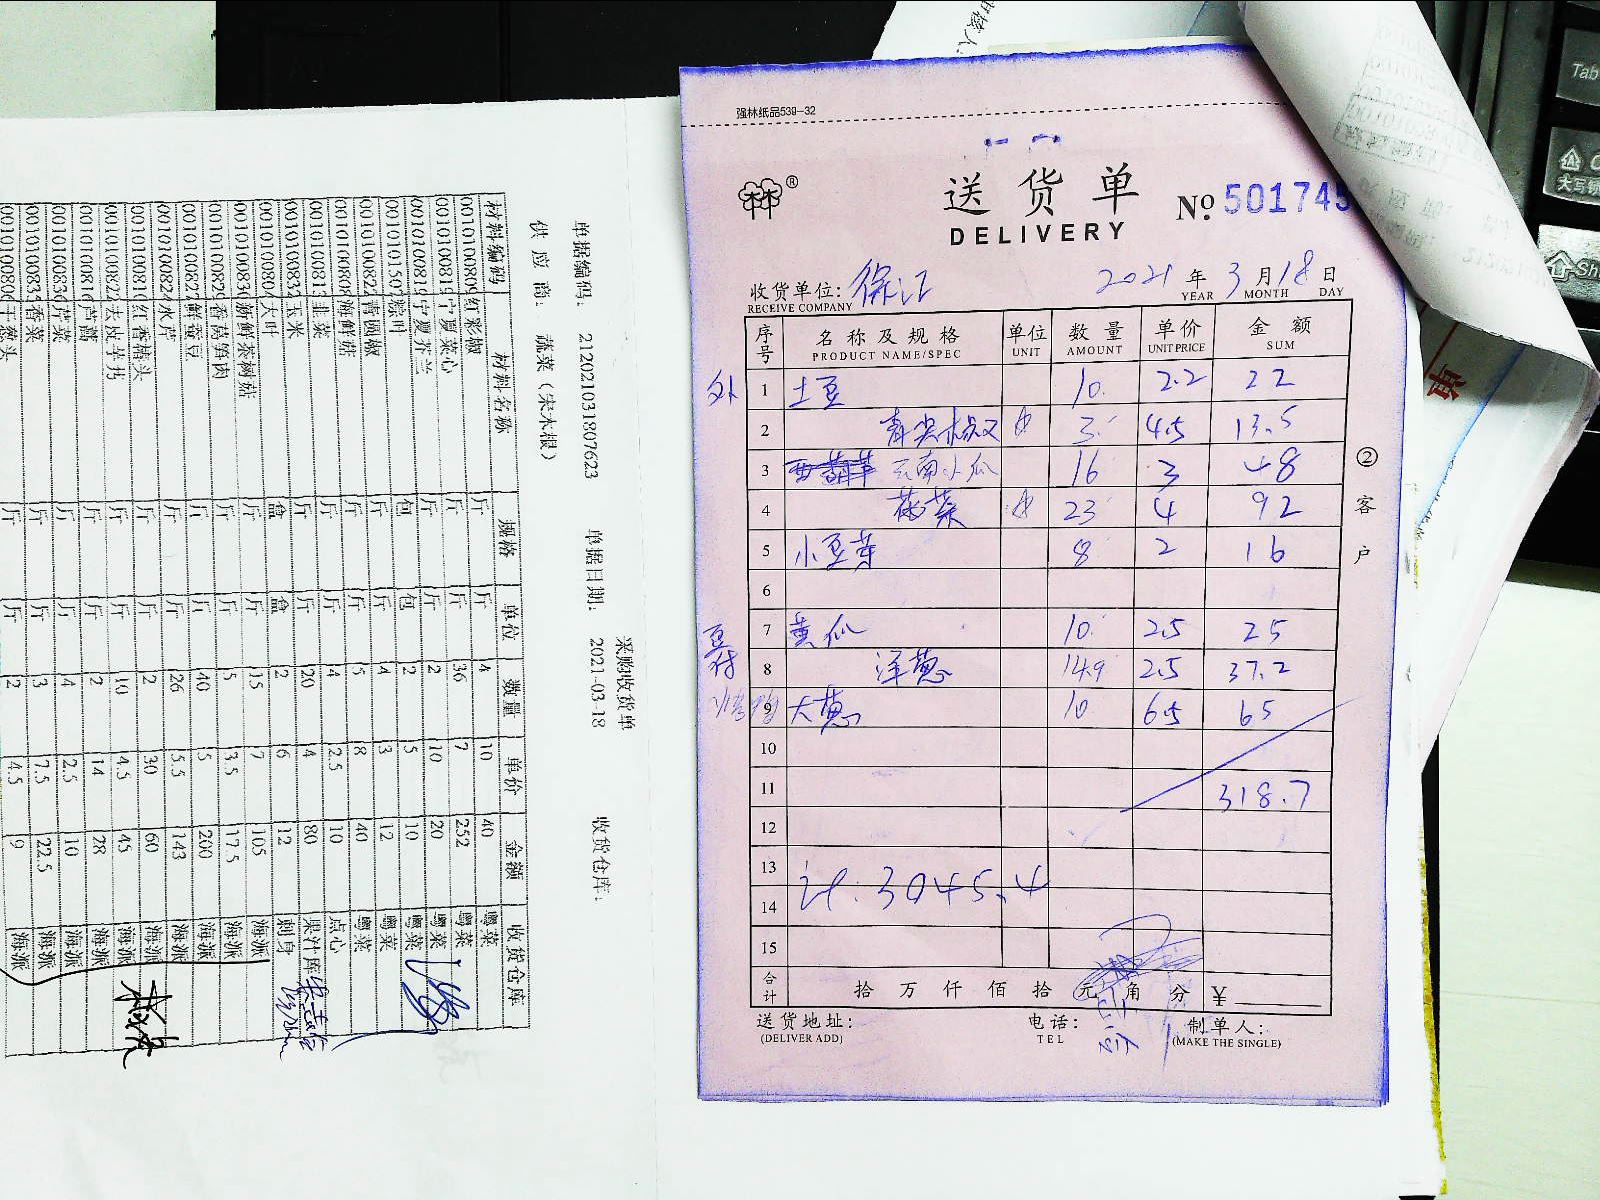 强林纸品539-32
送货单
DELIVERY
№ 501745
收货单位:
RECEIVE COMPANY
2021 年 3 月 18 日
YEAR MONTH DAY
序号 名称及规格 单位 数量 单价 金额
PRODUCT NAME/SPEC UNIT AMOUNT UNIT PRICE SUM
外 1 土豆 10. 2.2 22
2 青尖椒 3. 4.5 13.5
3 云南小瓜 16 3 48
4 菠菜 23 4 92
5 小豆芽 8 2 16
6
7 黄瓜 10. 2.5 25
8 洋葱 14.9 2.5 37.2
9 大葱 10 6.5 65
10
11 318.7
12
13
计:3045.4
14
15
合计 拾 万 仟 佰 拾 元 角 分 ¥
送货地址: 电话: 制单人:
(DELIVER ADD) TEL (MAKE THE SINGLE)
②客户
采购收货单
单据编码: 212021031807623 单据日期: 2021-03-18 收货仓库:
供应商: 蔬菜(宋木根)
材料编码 材料名称 规格 单位 数量 单价 金额 收货仓库
0010100809 红彩椒 斤 斤 4 10 40 粤菜
0010100815 宁夏菜心 斤 斤 36 7 252 粤菜
0010100819 宁夏芥兰 斤 斤 2 10 20 粤菜
001010150 粽叶 包 包 2 5 10 粤菜
0010100822 青圆椒 斤 斤 4 3 12 粤菜
0010100808 海鲜菇 斤 斤 5 8 40 粤菜
0010100813 韭菜 斤 斤 4 2.5 10 点心
0010100832 玉米 斤 斤 20 4 80 果汁库
0010100804 大叶 盒 盒 2 6 12 刺身
001010083 新鲜茶树菇 斤 斤 15 7 105 海派
0010100829 香莴笋肉 斤 斤 5 3.5 17.5 海派
0010100827 鲜蚕豆 斤 斤 40 5 200 海派
0010100824 水芹 斤 斤 26 5.5 143 海派
0010100810 红香椿头 斤 斤 2 30 60 海派
0010100822 去皮芋艿 斤 斤 10 4.5 45 海派
0010100816 芦蒿 斤 斤 2 14 28 海派
001010083 芹菜 斤 斤 4 2.5 10 海派
001010083 香菜 斤 斤 3 7.5 22.5 海派
001010080 干葱头 斤 斤 2 4.5 9 海派
Tab
大写锁